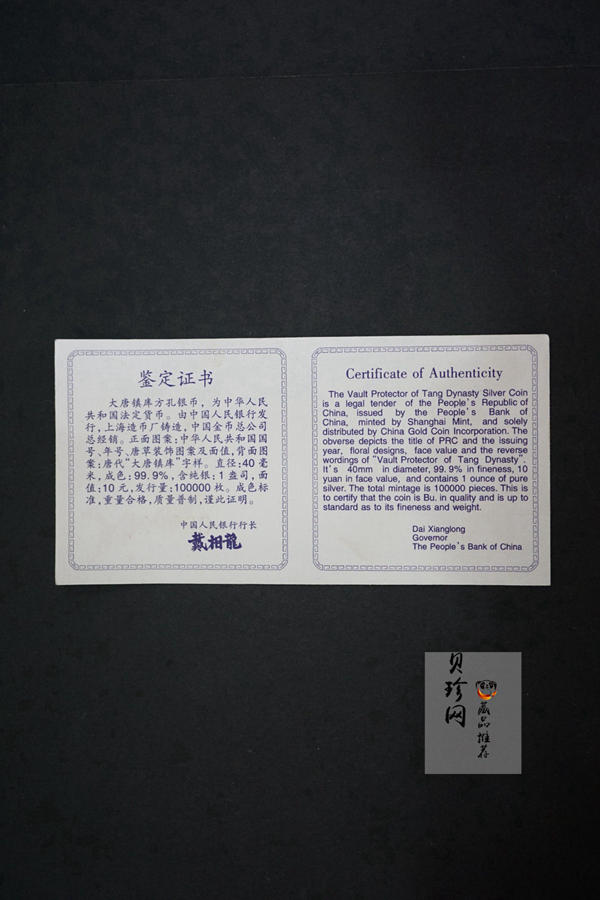 鉴定证书
大唐镇库方孔银币，为中华人民
共和国法定货币。由中国人民银行发
行，上海造币厂铸造，中国金币总公司
总经销。正面图案：中华人民共和国国
号、年号、唐草装饰图案及面值，背面图
案：唐代“大唐镇库”字样。直径：40毫
米，成色：99.9%，含纯银：1盎司，面
值：10元，发行量：100000枚。成色标
准，重量合格，质量普制，谨此证明。
中国人民银行行长
戴相龍
Certificate of Authenticity
The Vault Protector of Tang Dynasty Silver Coin
is a legal tender of the People's Republic of
China, issued by the People's Bank of
China, minted by Shanghai Mint, and solely
distributed by China Gold Coin Incorporation. The
obverse depicts the title of PRC and the issuing
year, floral designs, face value and the reverse
wordings of "Vault Protector of Tang Dynasty".
It's 40mm in diameter, 99.9% in fineness, 10
yuan in face value, and contains 1 ounce of pure
silver. The total mintage is 100000 pieces. This is
to certify that the coin is Bu. in quality and is up to
standard as to its fineness and weight.
Dai Xianglong
Governor
The People's Bank of China
贝珍网
藏品推荐